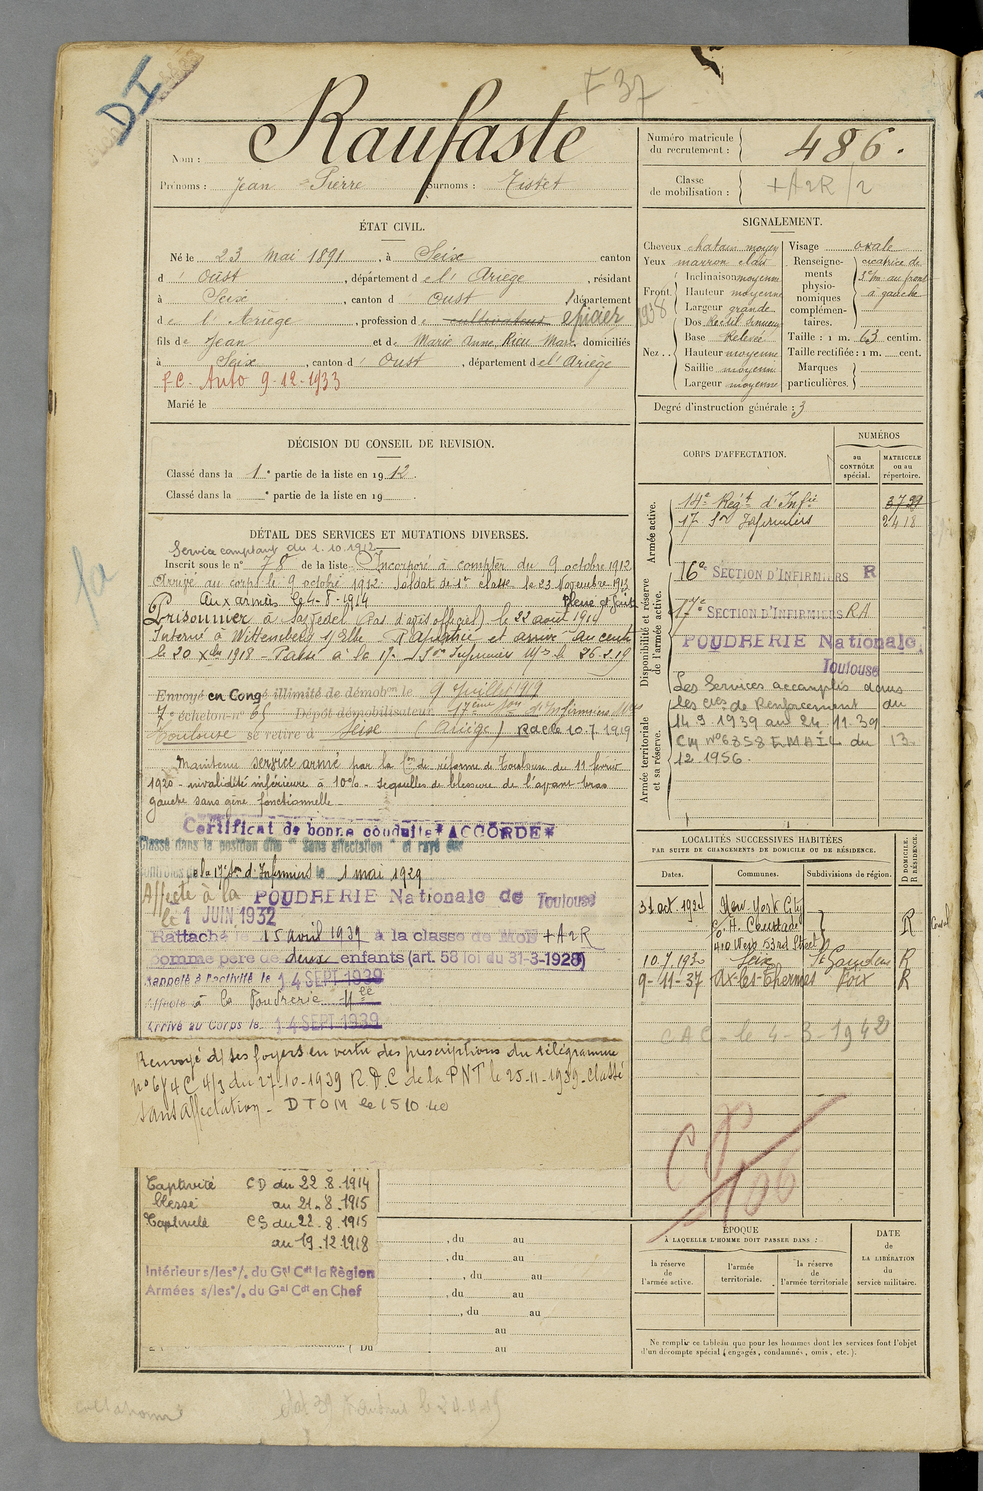 DI
F 37
Nom : Raufaste
Prénoms : Jean Pierre Surnoms : Tistet
Numéro matricule du recrutement : 486.
Classe de mobilisation : +A2R/2
ÉTAT CIVIL.
Né le 23 mai 1891, à Seix canton
d' Oust, département de l'Ariège, résidant
à Seix, canton d' Oust, département
de l'Ariège, profession de cultivateur épicier
fils de Jean et de Marie Anne, Rieu Marc, domiciliés
à Seix, canton d' Oust, département de l'Ariège
F.C. Auto 9-12-1933
Marié le
SIGNALEMENT.
Cheveux chatain moyen
Yeux marron clair
Front. Inclinaison moyenne
Hauteur moyenne
Largeur grande
Nez.. Dos Rectil sinueux
Base Relevée
Hauteur moyenne
Saillie moyenne
Largeur moyenne
Visage ovale
Renseignements physionomiques complémentaires. cicatrice de
au front
à gauche
Taille : 1 m. 63 centim.
Taille rectifiée : 1 m. cent.
Marques particulières.
1938
Degré d'instruction générale : 3
DÉCISION DU CONSEIL DE REVISION.
Classé dans la 1e partie de la liste en 1912.
Classé dans la e partie de la liste en 19 .
DÉTAIL DES SERVICES ET MUTATIONS DIVERSES.
Service comptant du 1.10.1912
Inscrit sous le n° 78 de la liste Incorporé à compter du 9 octobre 1912
Arrivé au corps le 9 octobre 1912. Soldat de 1re classe le 23 Novembre 1913
Aux armées le 4-8-1914
Prisonnier à (Pas d'avis officiel) le 22 août 1914
Interné à Wittemberg s/Elbe Rapatrié et arrivé au centre
le 20 Xbre 1918 - Passé à la 17e Son Infirmiers Mres le 26.2.19
Envoyé en Congé illimité de démobon le 9 Juillet 1919
7e échelon n° 65 Dépôt démobilisateur 17ème Son d'Infirmiers Mres
Toulouse se retire à Seix (Ariège) R d C le 10.7.1919
Maintenu service armé par la Com de réforme de Toulouse du 11 février
1920 - invalidité inférieure à 10% - séquelles de blessure de l'avant-bras
gauche sans gêne fonctionnelle -
Certificat de bonne conduite "ACCORDÉ"
Classé dans la position dite "Sans affectation" et rayé des
contrôles de la 17e Son d'Infirmiers le 1 mai 1929
Affecté à la POUDRERIE Nationale de Toulouse
le 1 JUIN 1932
Rattaché le 15 avril 1939 à la classe de MOB +A2R
comme père de deux enfants (art. 58 loi du 31-3-1928)
Rappelé à l'activité le 14 SEPT 1939
Affecté à la Poudrerie Nle
Arrivé au Corps le 14 SEPT 1939
Renvoyé d/ ses foyers en vertu des prescriptions du télégramme
du 27-10-1939 R.D.C de la PNT le 25-11-1939 - Classé
sans affectation - DTOM le 15 10 40
Captivité CD du 22.8.1914
blessé au 21.8.1915
Captivité CS du 22.8.1915
au 19.12.1918
Intérieur s/les °/. du Gal Cdt la Région
Armées s/les °/. du Gal Cdt en Chef
, du au
, du au
, du au
, du au
, du au
au
Du au
CORPS D'AFFECTATION.
NUMÉROS
au CONTRÔLE spécial.
MATRICULE ou au répertoire.
Armée active.
14e Régt d'Infie 3739
17 Son Infirmiers 2418
Disponibilité et réserve de l'armée active.
16e SECTION D'INFIRMIERS R
17e SECTION D'INFIRMIERS RA
POUDRERIE Nationale.
Toulouse
Armée territoriale et sa réserve.
Les Services accomplis dans
les cies de Renforcement du
14 9 1939 au 24.11.39.
CM n° 6858 EMA/IL du 13.
12.1956.
LOCALITÉS SUCCESSIVES HABITÉES
PAR SUITE DE CHANGEMENTS DE DOMICILE OU DE RÉSIDENCE.
Dates. Communes. Subdivisions de région. D DOMICILE. R RÉSIDENCE.
31 oct. 1924 New-York City
410 West 53rd Street R
10.7.1932 Seix St Gaudens R
9-11-37 Ax-les-Thermes Foix R
CAC le 4-3-1942
ÉPOQUE
À LAQUELLE L'HOMME DOIT PASSER DANS :
la réserve de l'armée active.
l'armée territoriale.
la réserve de l'armée territoriale
DATE de LA LIBÉRATION du service militaire.
Ne remplir ce tableau que pour les hommes dont les services font l'objet
d'un décompte spécial (engagés, condamnés, omis, etc.).